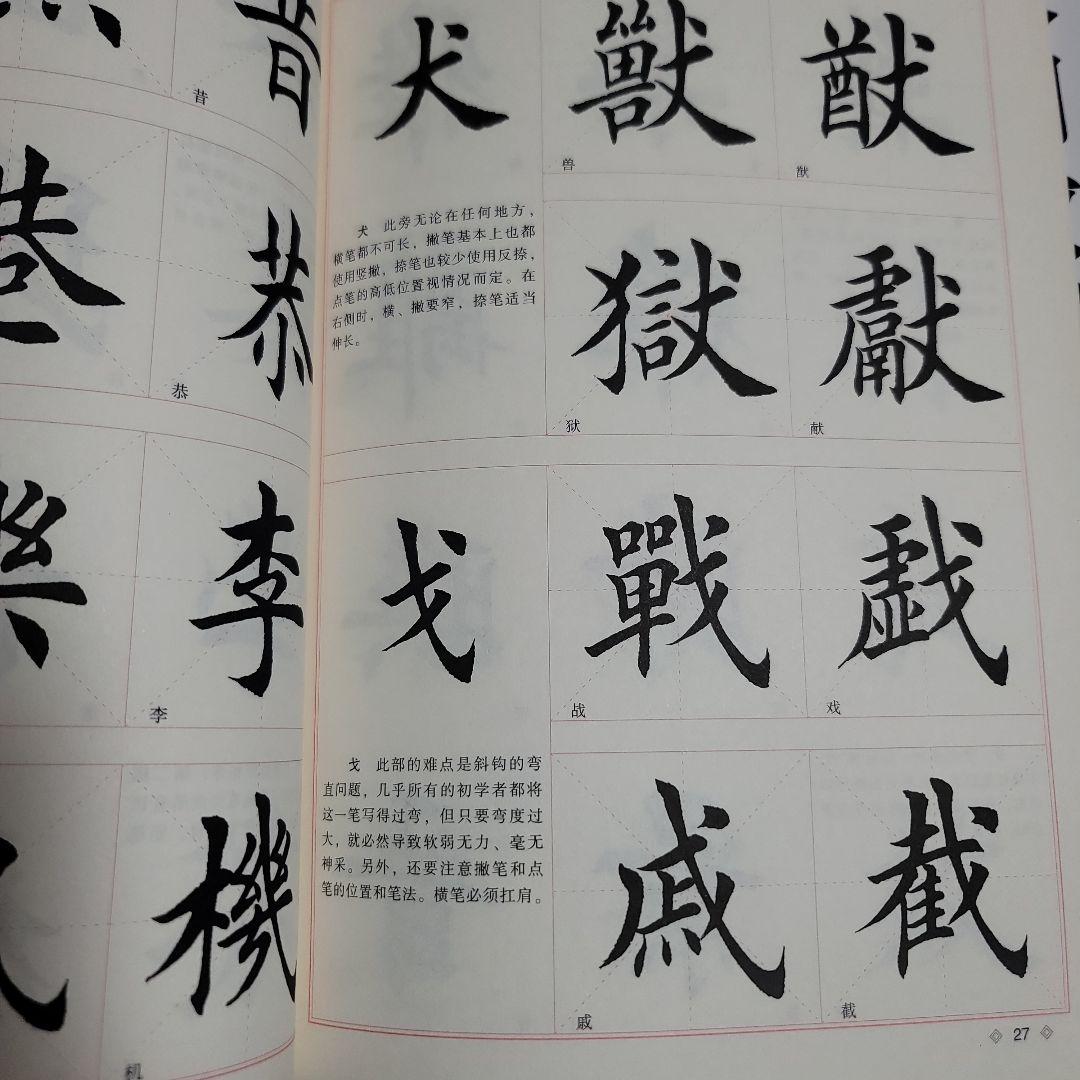 昔
昔
恭
恭
李
李
機
机
犬
獸
兽
猷
猷
犬 此旁无论在任何地方，
横笔都不可长，撇笔基本上也都
使用竖撇，捺笔也较少使用反捺，
点笔的高低位置视情况而定。在
右侧时，横、撇要窄，捺笔适当
伸长。
獄
狱
獻
献
戈
戰
战
戲
戏
戈 此部的难点是斜钩的弯
直问题，几乎所有的初学者都将
这一笔写得过弯，但只要弯度过
大，就必然导致软弱无力、毫无
神采。另外，还要注意撇笔和点
笔的位置和笔法。横笔必须扛肩。
戚
戚
截
截
27